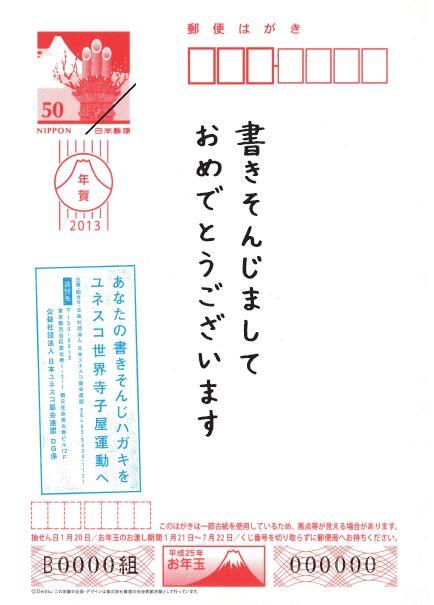 郵便はがき
50
NIPPON 日本郵便
年賀
2013
書きそんじまして
おめでとうございます
あなたの書きそんじハガキを
ユネスコ世界寺子屋運動へ
送付先
〒150-0013
公益社団法人 日本ユネスコ協会連盟 DG係
このはがきは一部古紙を使用しているため、黒点等が見える場合があります。
抽せん日1月20日／お年玉のお渡し期間1月21日〜7月22日／くじ番号を切り取らずに郵便局へお持ちください。
B0000組
平成25年
お年玉
000000